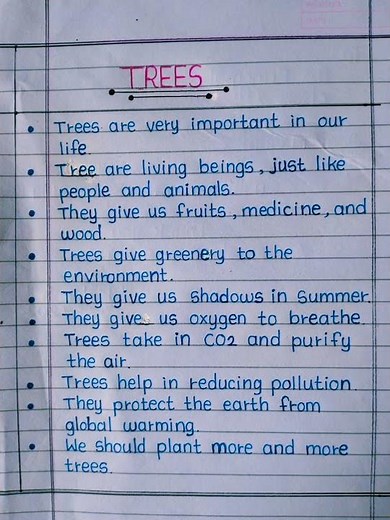 TREES
• Trees are very important in our
life.
• Tree are living beings, just like
people and animals.
• They give us fruits, medicine, and
wood.
• Trees give greenery to the
environment.
• They give us shadows in Summer.
• They gives us oxygen to breathe.
• Trees take in CO2 and purify
the air.
• Trees help in reducing pollution.
• They protect the earth from
global warming.
• We should plant more and more
trees.